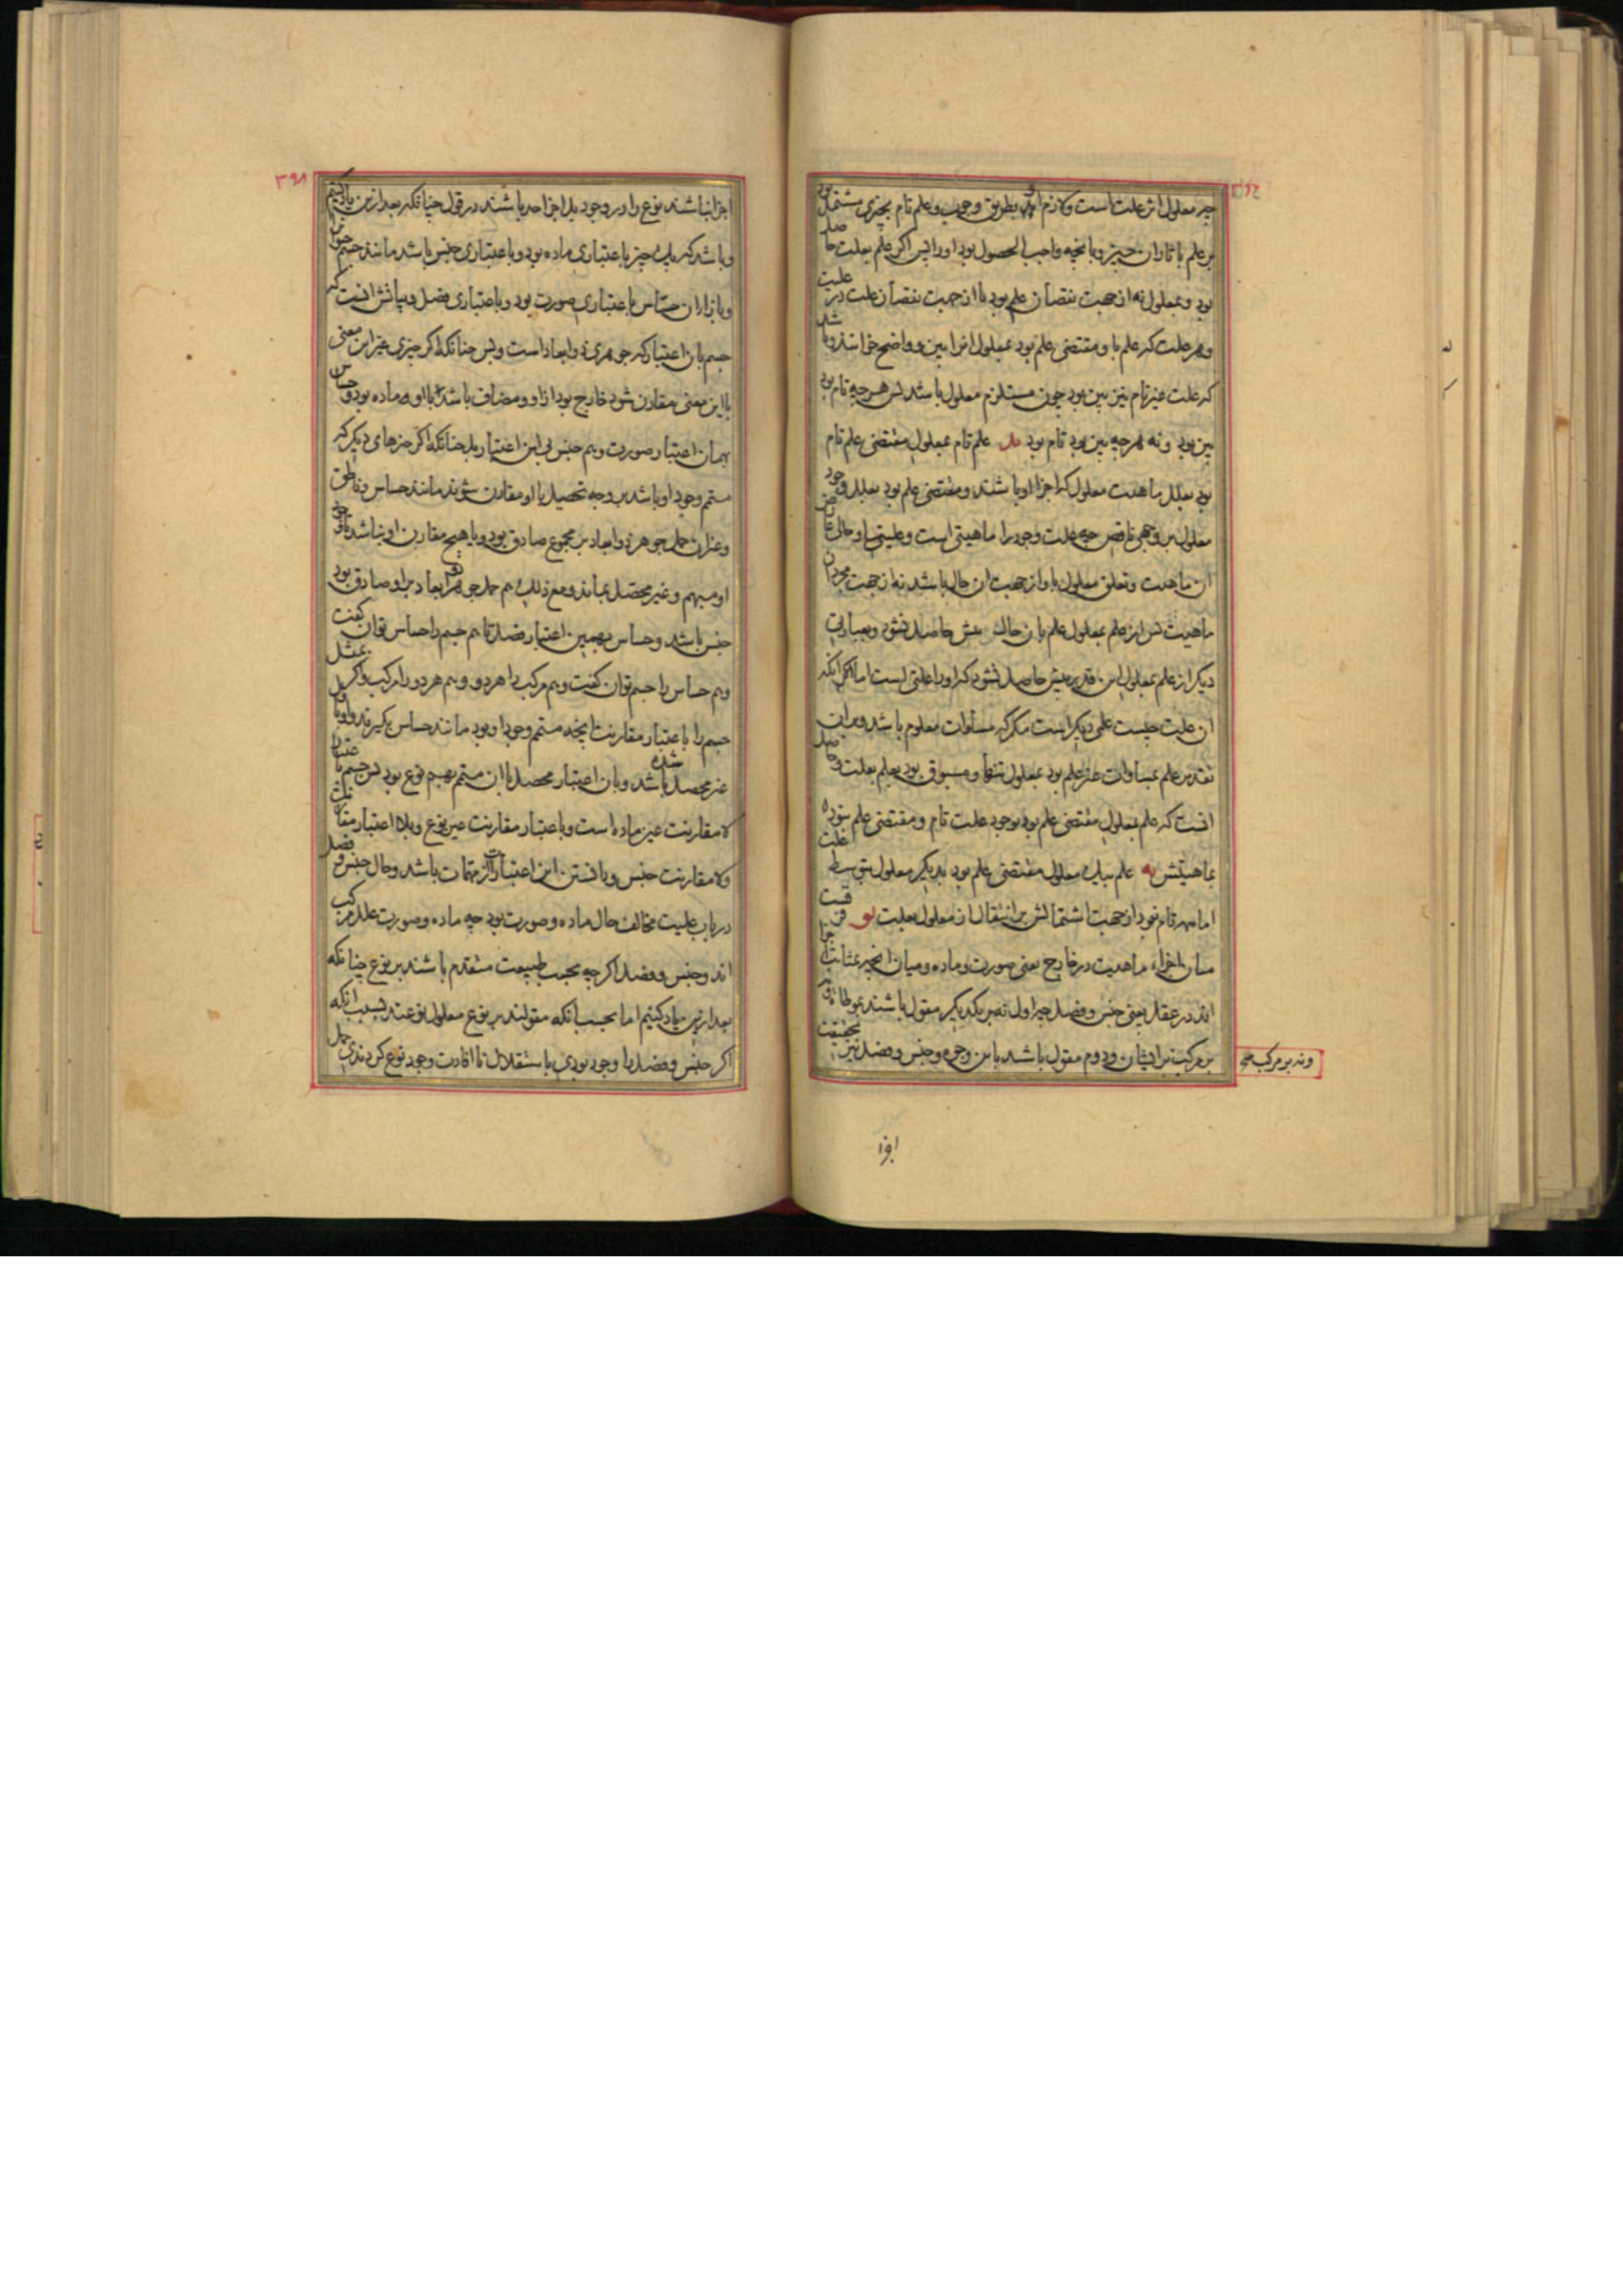 چه معلول اثر علت است و لازم او بطریق وجوب و علم تام بچیزی مشتمل بود
بر علم باثار ان چیز و بانچه واجب الحصول بود اورا پس اکر علم بعلت حاصل
بود و بمعلول نه از جهت نقصان علم بود یا از جهت نقصان علت در علیت
و هر علت که علم باو مقتضی علم بود بمعلول انرا بین و واضح خوانند و باشد
که علت غیر تام نیز بین بود چون مستلزم معلول باشد پس هر چه تام بود
بین بود و نه هر چه بین بود تام بود علم تام بمعلول مقتضی علم تام
بود بعلل ماهیت معلول که اجزا او باشند و مقتضی علم بود بعلل وجود
معلول بر وجهی ناقص چه علت وجود را ماهیتی است و علیتی او حالی
ان ماهیت و تعلق معلول باو از جهت ان حال باشد نه از جهت مجرد ان
ماهیت پس از علم بمعلول علم بان حال بیش حاصل نشود و بعبارتی
دیکر از علم بمعلول این قدر بیش حاصل نشود که اورا علتی است اما انکه
ان علت چیست علمی دیکر است مکر که مساوات معلوم باشد و بران
تقدیر علم بمساوات غیر علم بود بمعلول تنها و مسبوق بود بعلم بعلت و حاصل
انست که علم بمعلول مقتضی علم بود بوجود علت تام و مقتضی علم نبود
بماهیتش علم بیک معلول مقتضی علم بود بدیکر معلول بتوسط علت
اما نه تام بود از جهت اشتمالش بر انتقال از معلول بعلت فرقست
میان اجزاء ماهیت در خارج یعنی صورت و ماده و میان انچه بمثابت اجزا
اند در عقل یعنی جنس و فصل چه اول نه بر یکدیکر مقول باشند بمواطاة و
بر مرکب از ایشان و دوم مقول باشد باین وجوه و جنس و فصل نیز بحقیقت
ونه بر مرکب
اجزا نباشند نوع را در وجود بل اجزا حد باشند در قول چنانکه بعد ازین یاد کنیم
و باشد که یک چیز باعتباری ماده بود و باعتباری جنس باشد مانند جسم
و بازا ان حساس باعتباری صورت بود و باعتباری فصل و بیانش انست که
جسم بان اعتبار که جوهری ذو ابعاد است و بس چنانکه اکر چیزی غیر این معنی
با این معنی مقارن شود خارج بود از او و مضاف باشد با او ماده بود و حساس
بهمان اعتبار صورت و هم جسم نی این اعتبار بل چنانکه اکر چیزهای دیکر که
متمم وجود او باشد بر وجه تحصیل با او مقارن شوند مانند حساس و ناطق
و غیر ان حمل جوهر ذو ابعاد بر مجموع صادق بود و یا هیچ مقارن او نباشد
او مبهم و غیر محصل بماند و مع ذلک هم حمل جوهر ذو ابعاد بر او صادق بود
جنس باشد و حساس بهمین اعتبار فصل تا هم جسم را حساس توان کفت
و هم حساس را جسم توان کفت و هم مرکب را هر دو و هم هر دو را مرکب و اکر
جسم را باعتبار مقارنت انچه متمم وجود او بود مانند حساس بکیرند
غیر محصل باشد و بان اعتبار محصل شده با ان متمم بهم نوع بود پس جسم باعتبار
لا مقارنت غیر ماده است و باعتبار مقارنت عین نوع و بلا اعتبار مقارنت
و لا مقارنت جنس و یافتن این اعتبارات از مهمات باشد و حال جنس و فصل
در باب علیت مخالف حال ماده و صورت بود چه ماده و صورت علل مرکب
اند و جنس و فصل اکر چه بحسب طبیعت متقدم باشند بر نوع چنانکه
بعد ازین یاد کنیم اما بحسب انکه مقولند بر نوع معلول نوعند بسبب انکه
اکر جنس و فصل را وجود بودی باستقلال تا افادت وجود نوع کردندی حمل